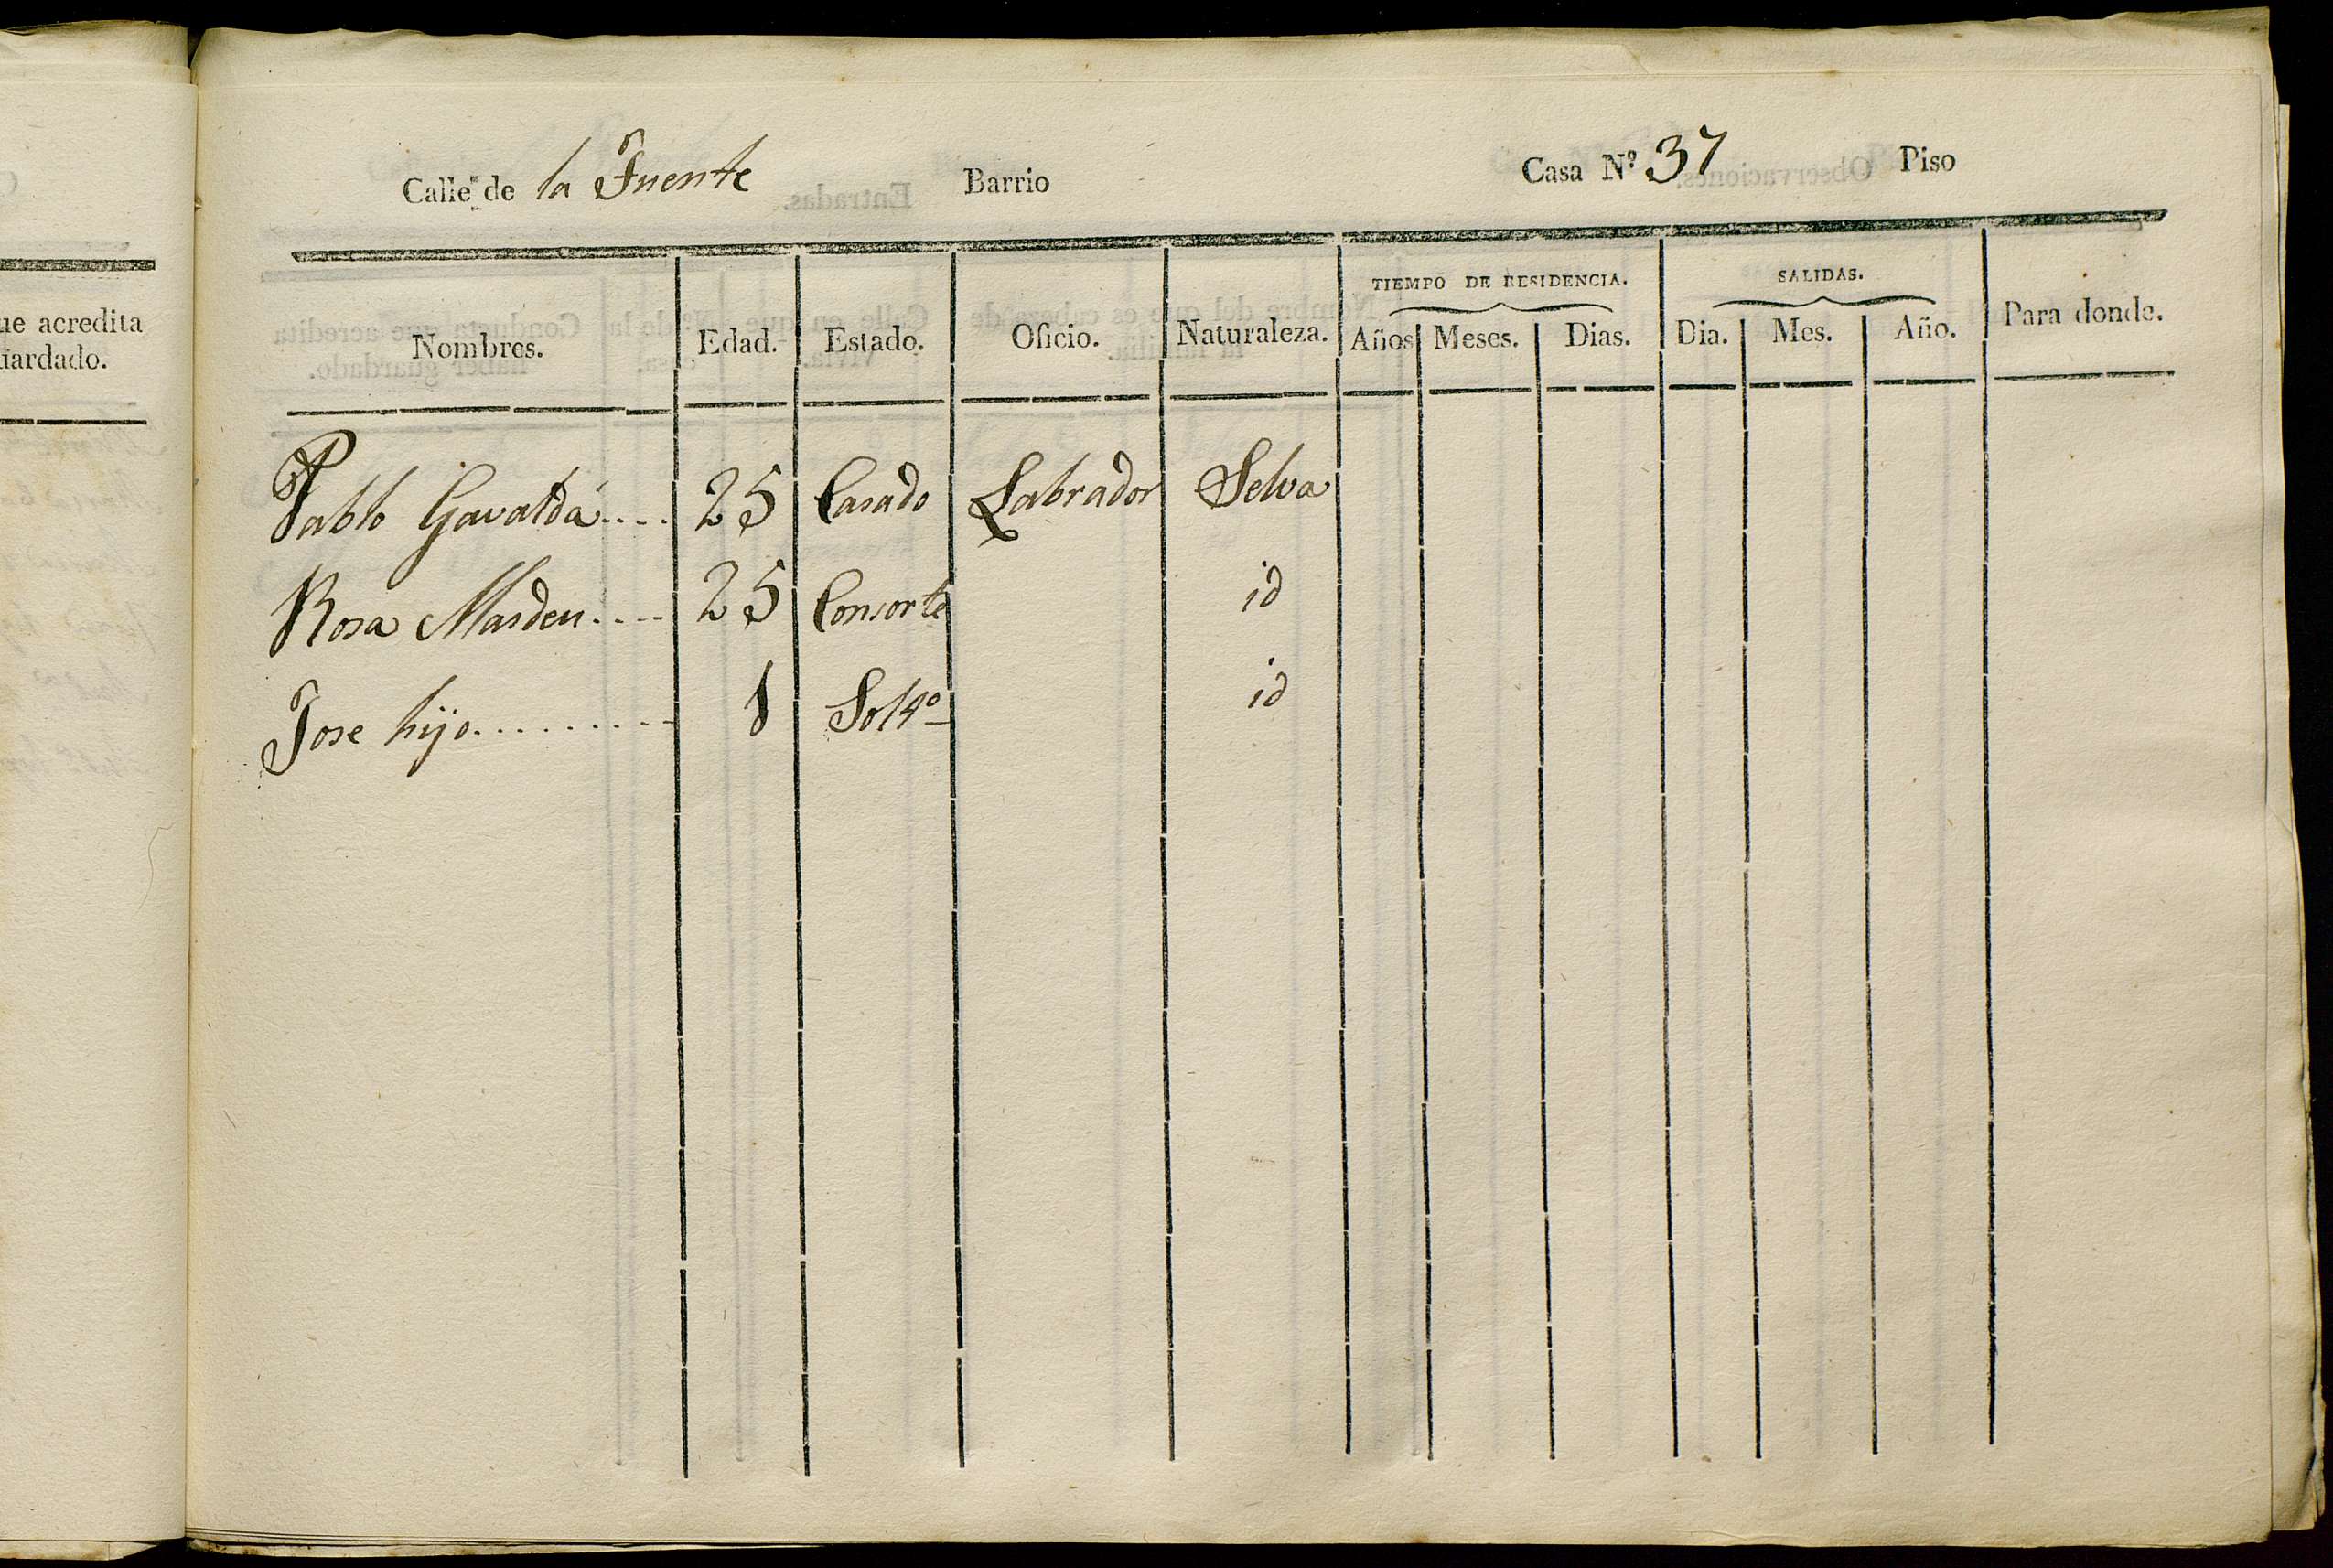 ue acredita
uardado.
Calle de la Fuente Barrio Casa N.º 37 Piso
TIEMPO DE RESIDENCIA. SALIDAS.
Nombres. Edad. Estado. Oficio. Naturaleza. Años Meses. Dias. Dia. Mes. Año. Para donde.
Pablo Gavaldá.... 25 Casado Labrador Selva
Rosa Masdeu.... 25 Consorte id
Jose hijo......... 1 Solt.º id